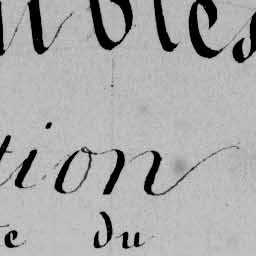 ubles
tion
te du